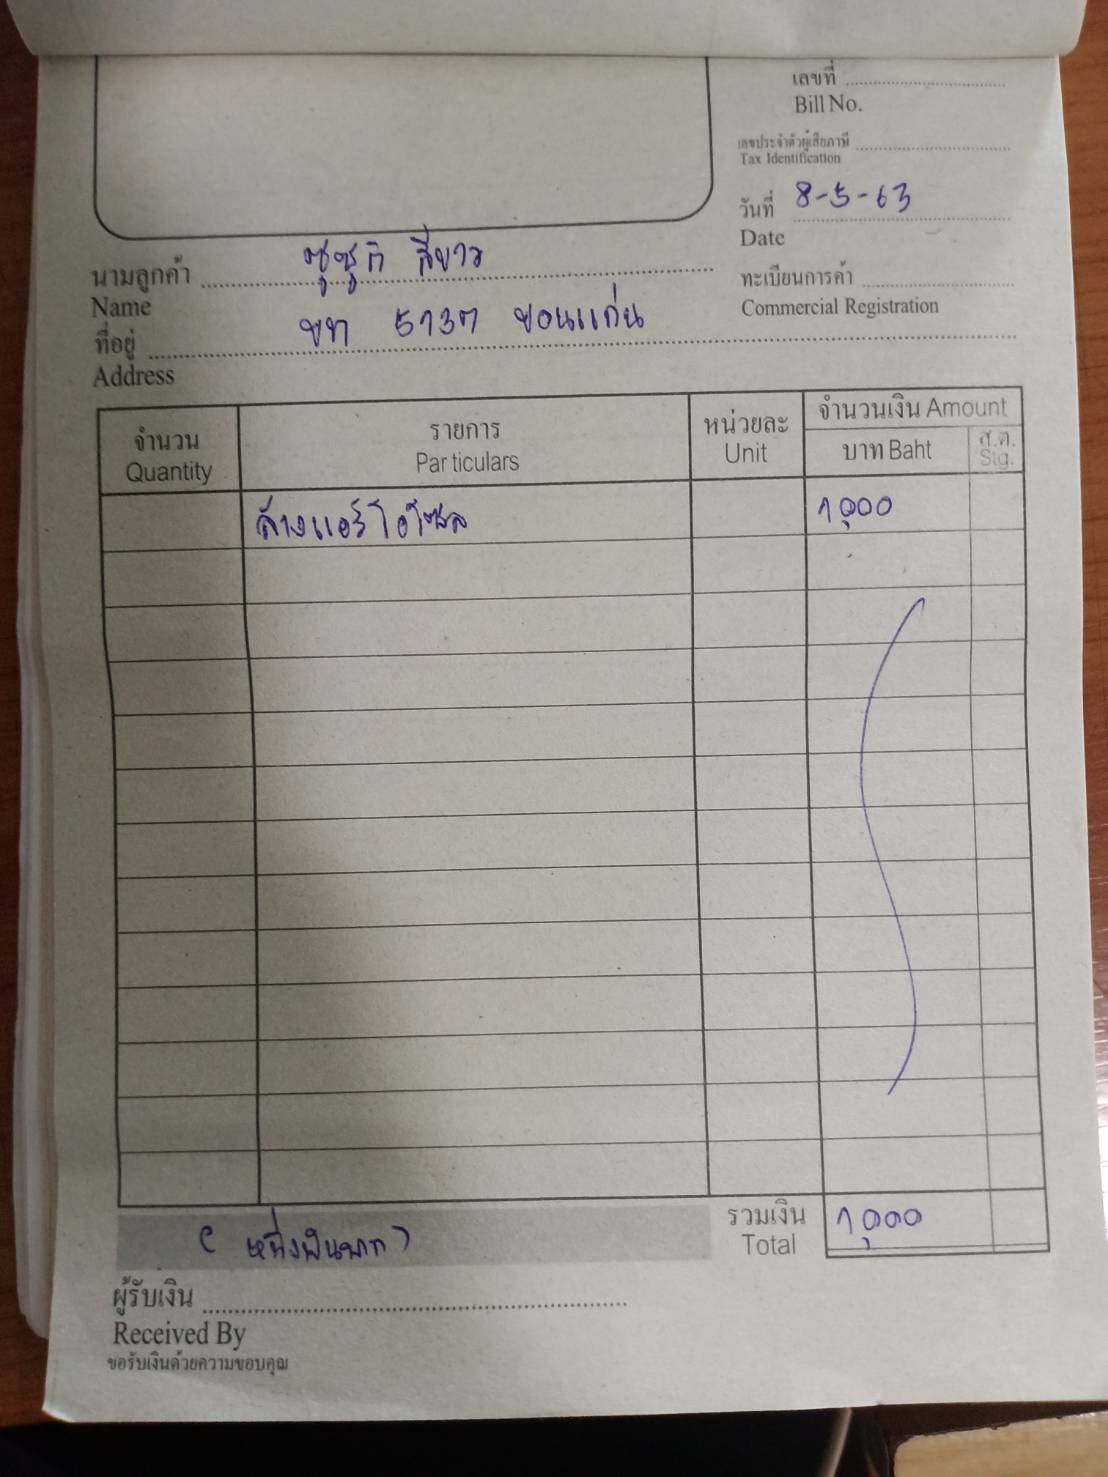 เลขที่
Bill No.
เลขประจำตัวผู้เสียภาษี
Tax Identification
วันที่ 8-5-63
Date
นามลูกค้า ซูซูกิ สีขาว
Name
ทะเบียนการค้า
Commercial Registration
ที่อยู่ ขท 5737 ขอนแก่น
Address
จำนวน รายการ หน่วยละ จำนวนเงิน Amount
Quantity Particulars Unit บาท Baht ส.ต. Stg.
ล้างแอร์ โอโซล 1,000
รวมเงิน 1,000
Total
( หนึ่งพันบาท )
ผู้รับเงิน
Received By
ขอรับเงินด้วยความขอบคุณ